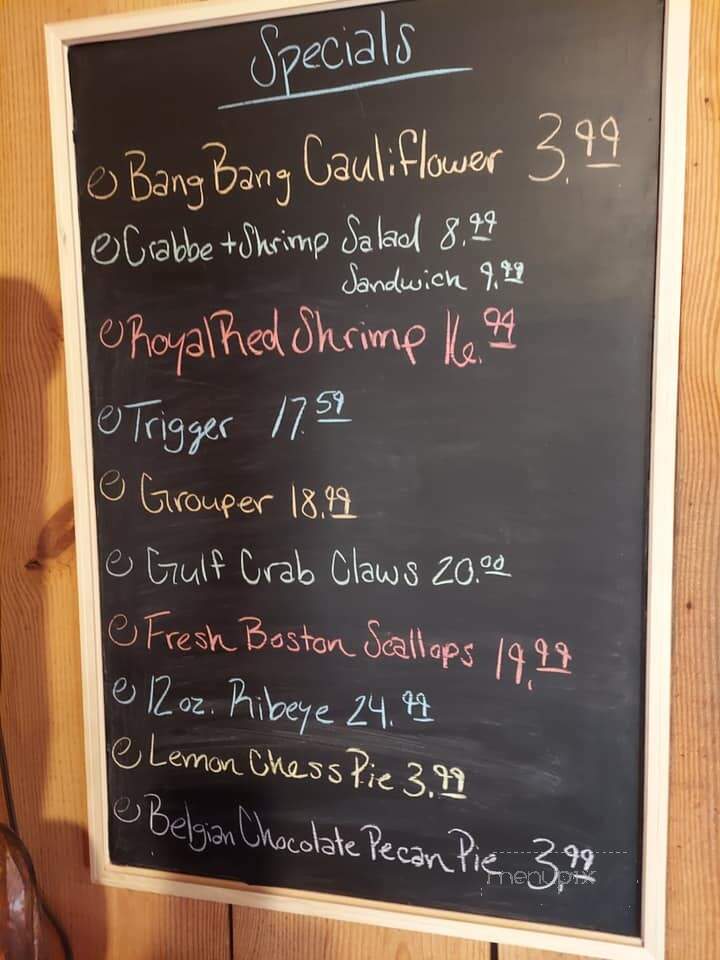 Specials
Bang Bang Cauliflower 3.99
Crabbe + Shrimp Salad 8.99
Sandwich 9.99
Royal Red Shrimp 16.99
Trigger 17.59
Grouper 18.99
Gulf Crab Claws 20.00
Fresh Boston Scallops 19.99
12 oz. Ribeye 24.99
Lemon Chess Pie 3.99
Belgian Chocolate Pecan Pie 3.99
menupix